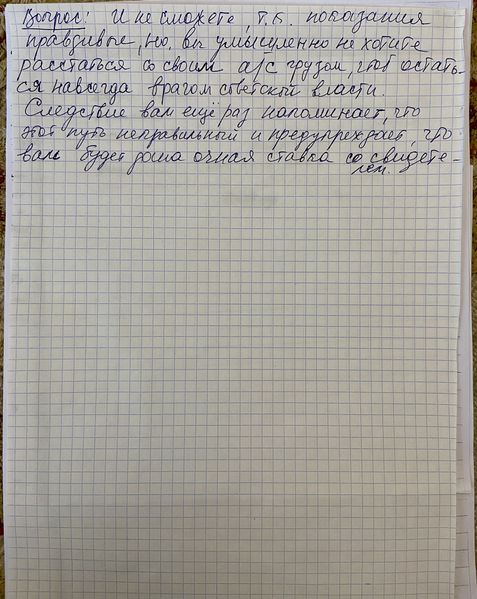 Вопрос: И не сможете, т.к. показания
правдивые, но, вы умышленно не хотите
расстаться со своим а/с грузом, чтоб остать-
ся навсегда врагом советской власти.
Следствие вам ещё раз напоминает, что
этот путь неправильный и предупреждает, что
вам будет дана очная ставка со свидете-
лем.